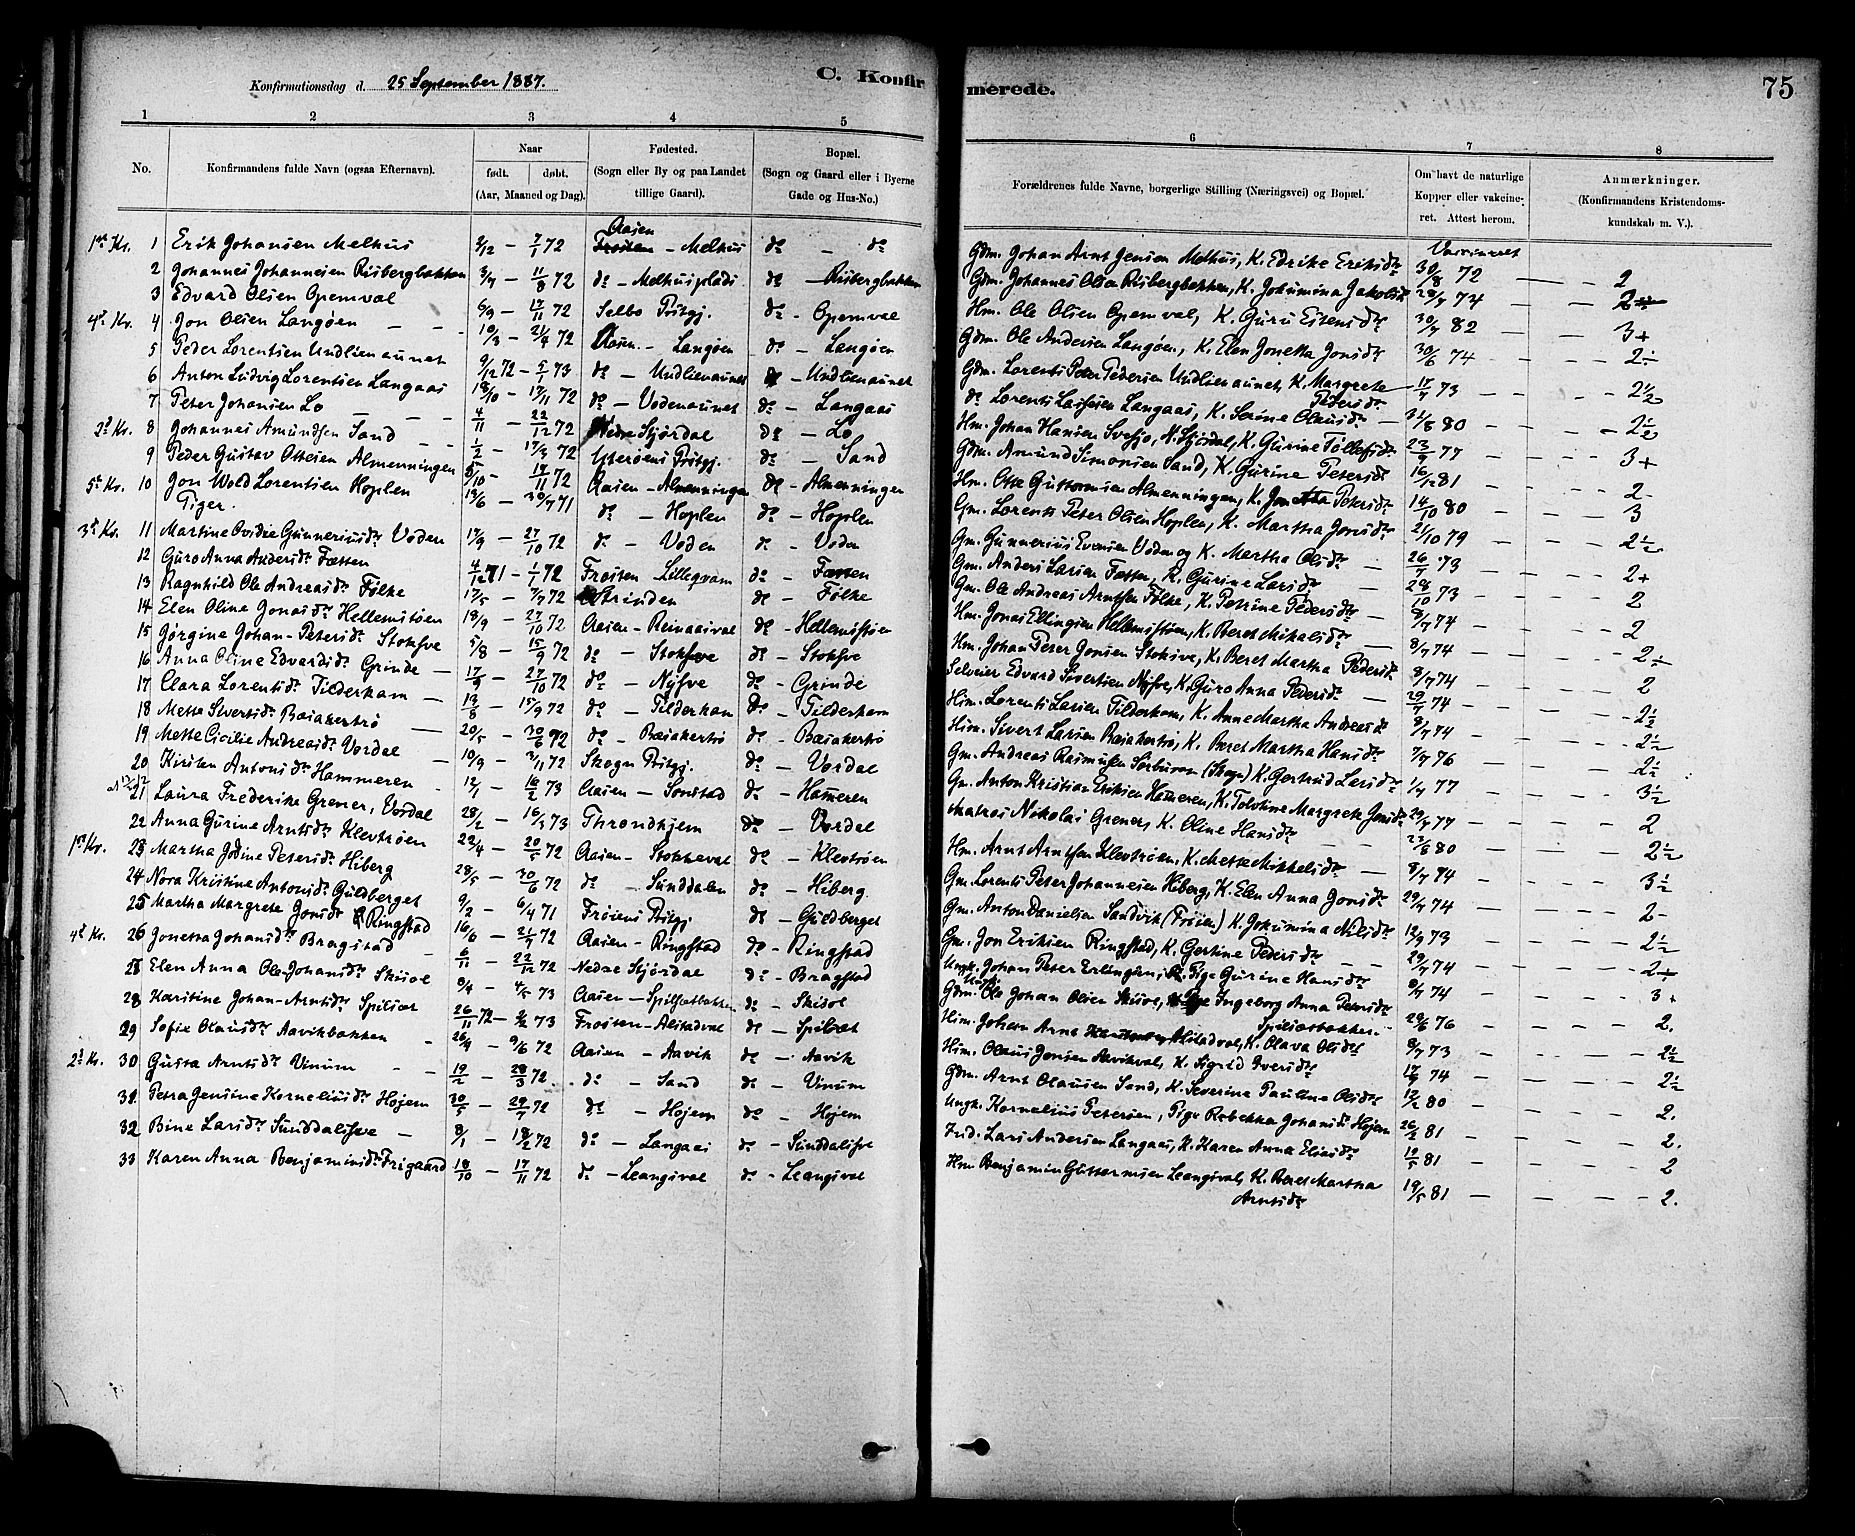 C. Konfirmerede.
75
Konfirmationsdag d. 25 September 1887.
1 2 3 4 5 6 7 8
No.
Konfirmandens fulde Navn (ogsaa Efternavn).
Naar
født. døbt.
(Aar, Maaned og Dag).
Fødested.
(Sogn eller By og paa Landet
tillige Gaard).
Bopæl.
(Sogn og Gaard eller i Byerne
Gade og Hus-No.)
Forældrenes fulde Navne, borgerlige Stilling (Næringsvei) og Bopæl.
Om havt de naturlige
Kopper eller vakcine-
ret. Attest herom.
Anmærkninger.
(Konfirmandens Kristendoms-
kundskab m. V.).
1 Erik Johansen Melhus 2/12 – 7/1 72 Aasen – Melhus do do Gdm. Johan Arnt Jensen Melhus, K. Edrike Eriksdr 30/8 72 – – – 2
2 Johannes Johannesen Risbergbakken 3/7 – 11/8 72 do – Melhusplads do – Risbergbakken Gdm. Johannes Olsen Risbergbakken, K. Jokumina Jakobsdr 28/7 74
3 Edvard Olsen Opemval 6/9 – 17/11 72 Selbo Prstgj. do – Opemval Hm. Ole Olsen Opemval, K. Guru Estensdr 30/7 82 – – – 3+
4t Kr. 4 Jon Olsen Langøen 10/3 – 21/4 72 Aasen – Langøen do – Langøen Gdm. Ole Andersen Langøen, K. Elen Jonetta Jonsdr 30/6 74
5 Peder Lorentsen Undlienaunet 9/12 72 – 5/1 73 do – Undlienaunet do – Undlienaunet Gdm. Lorents Peter Pedersen Undlienaunet, K. Margrete Pedersdr 17/7 73
6 Anton Ludvig Lorentsen Langaas 18/10 – 17/11 72 do – Vodenaunet do – Langaas do Lorents Lassesen Langaas, K. Serine Olausdr
7 Peter Johansen Lo 4/11 – 22/12 72 Nedre Stjørdal do – Lo Hm. Johan Hansen Svesjo, N. Stjørdal, K. Gurine Tollefsdr 23/9 77 – – – 3+
2t Kr. 8 Johannes Amundsen Sand 1/2 – 17/3 72 Ytterøens Prstgj. do – Sand Gdm. Amund Simonsen Sand, K. Gurine Petersdr 16/12 81 – – – 2-
9 Peder Gustav Ottesen Almenningen 5/10 – 17/11 72 Aasen – Almenningen do – Almenningen Hm. Otte Guttormsen Almenningen, K. Jonetta Petersdr 14/10 80 – – – 3
5t Kr. 10 Jon Wold Lorentsen Hoplen 13/6 – 30/7 71 do – Hoplen do – Hoplen Gm. Lorents Peter Olsen Hoplen, K. Martha Jonsdr 21/10 79
Piger.
3t Kr. 11 Martine Ovidie Gunneriusdr Voden 17/9 – 27/10 72 do – Voden do – Voden Gm. Gunnerius Evensen Voden og K. Martha Olsdr 26/7 73 – – – 2+
12 Guro Anna Andersdr Fætten 4/12 71 – 1/1 72 Frosten – Lillegvam do – Fætten Gm. Anders Larsen Fætten, K. Gurine Larsdr 28/10 73 – – – 2
13 Ragnhild Ole Andreasdr Følke 17/5 – 7/7 72 Strinden do – Følke Gm. Ole Andreas Arntsen Følke, K. Petrine Pedersdr 8/7 74 – – – 2
14 Elen Oline Jonasdr Hellemstøen 18/9 – 27/10 72 Aasen – Reinaasval do – Hellemstøen Hm. Jonas Ellingsen Hellemstøen, K. Beret Mikalsdr 8/7 74
15 Jørgine Johan-Petersdr Stokfve 5/8 – 15/9 72 do – Stokfve do – Stokfve Hm. Johan Peter Jonsen Stokfve, K. Beret Martha Pedersdr 8/7 74 – – – 2
16 Anna Oline Edvardsdr Grinde 17/9 – 27/10 72 do – Nyfve do – Grinde Selveier Edvard Sivertsen Nyfve, K. Guro Anna Pedersdr 29/7 74
17 Clara Lorentsdr Tilderham 13/8 – 15/9 72 do – Tilderham do – Tilderham Hm. Lorents Larsen Tilderham, K. Anne Martha Andreasdr 8/7 74
18 Mette Sivertsdr Bæsakertrø 20/5 – 30/6 72 do – Bæsakertrø do – Bæsakertrø Hm. Sivert Larsen Bæsakertrø, K. Beret Martha Hansdr 7/7 76
19 Mette Cicilie Andreasdr Vordal 10/9 – 3/11 72 Skogn Prstgj. do – Vordal Gm. Andreas Rasmusen (Skogn) K. Gertrud Larsdr 1/7 77
20 Kirsten Antonsdr Hammeren 12/1 – 16/2 73 Aasen – Sonstad do – Hammeren Gm. Anton Kristian Eriksen Hammeren, K. Margrete Jonsdr 29/7 77 – – – 2
21 Laura Frederike Grener, Vordal 28/2 – 16/3 73 Throndhjem do – Vordal Matros Nikolai Grener, K. Oline Hansdr
22 Anna Gurine Arntsdr Klevtrøen 22/4 – 20/5 72 Aasen – Stokkeval do – Klevtrøen Hm. Arnt Arntsen Klevtrøen, K. Mette Mikkelsdr 8/7 74
1st Kr. 23 Martha Petersdr Hiberg 28/5 – 30/6 72 do – Sunddalen do – Hiberg Gm. Lorents Peter Johannesen Hiberg, K. Elen Anna Jonsdr 29/7 74 – – – 2-
24 Nora Kristine Antonsdr Guldberget 9/2 – 6/4 71 Frøiens Prstgj. do – Guldberget Gm. Anton Danielsen Sandvik (Frøien) K. Jokumina Nilsdr 12/9 73
25 Martha Margrete Jonsdr Ringstad 16/6 – 21/7 72 Aasen – Ringstad do – Ringstad Gm. Jon Eriksen Ringstad, K. Gertine Pedersdr 29/7 74
4t Kr. 26 Jonetta Johansdr Bragstad 6/11 – 22/12 72 Nedre Stjørdal do – Bragstad Ungk. Johan Peter Erlingsen, Pige Gurine Hansdr 8/7 74 – – – 3+
28 Elen Anna Ole-Johansdr Skisol 8/4 – 4/5 73 Aasen – Spilsætbakken do – Skisol Ole Johan Olsen Skisol, Ingeborg Anna Petersdr Spilsætbakken 29/6 76 – – – 2.
28 Karstine Johan-Arntsdr Spilsæt 26/11 72 – 2/2 73 Frosten – Alstadval do – Spilsæt Hm. Johan Arnt Alstadval, K. Olava Olsdr 8/7 73
29 Sofie Olausdr Aavikbakken 26/4 – 9/6 72 Aasen – Aavik do – Aavik Hm. Olaus Jensen Aavikval, K. Sigrid Iversdr 17/9 74
2t Kr. 30 Gusta Arntsdr Vinum 19/2 – 28/3 72 do – Sand do – Vinum Gdm. Arnt Olausen Sand, K. Severine Pauline Olsdr 12/2 80 – – – 2.
31 Petra Jensine Korneliusdr Hojem 30/5 – 29/7 72 do – Hojem do – Hojem Ungk. Kornelius Petersen, Pige Rebekka Johansdr Hojem 26/2 81 – – – 2.
32 Bine Larsdr Sunddalsfve 8/1 – 18/2 72 do – Langaas do – Sunddalsfve Ind. Lars Andersen Langaas, K. Karen Anna Eliasdr 19/5 81 – – – 2
33 Karen Anna Benjaminsdr Frigaard 18/10 – 17/11 72 do – Leangsval do – Leangsval Hm. Benjamin Guttormsen Leangsval, K. Beret Martha Arntsdr 19/5 81 – – – 2.